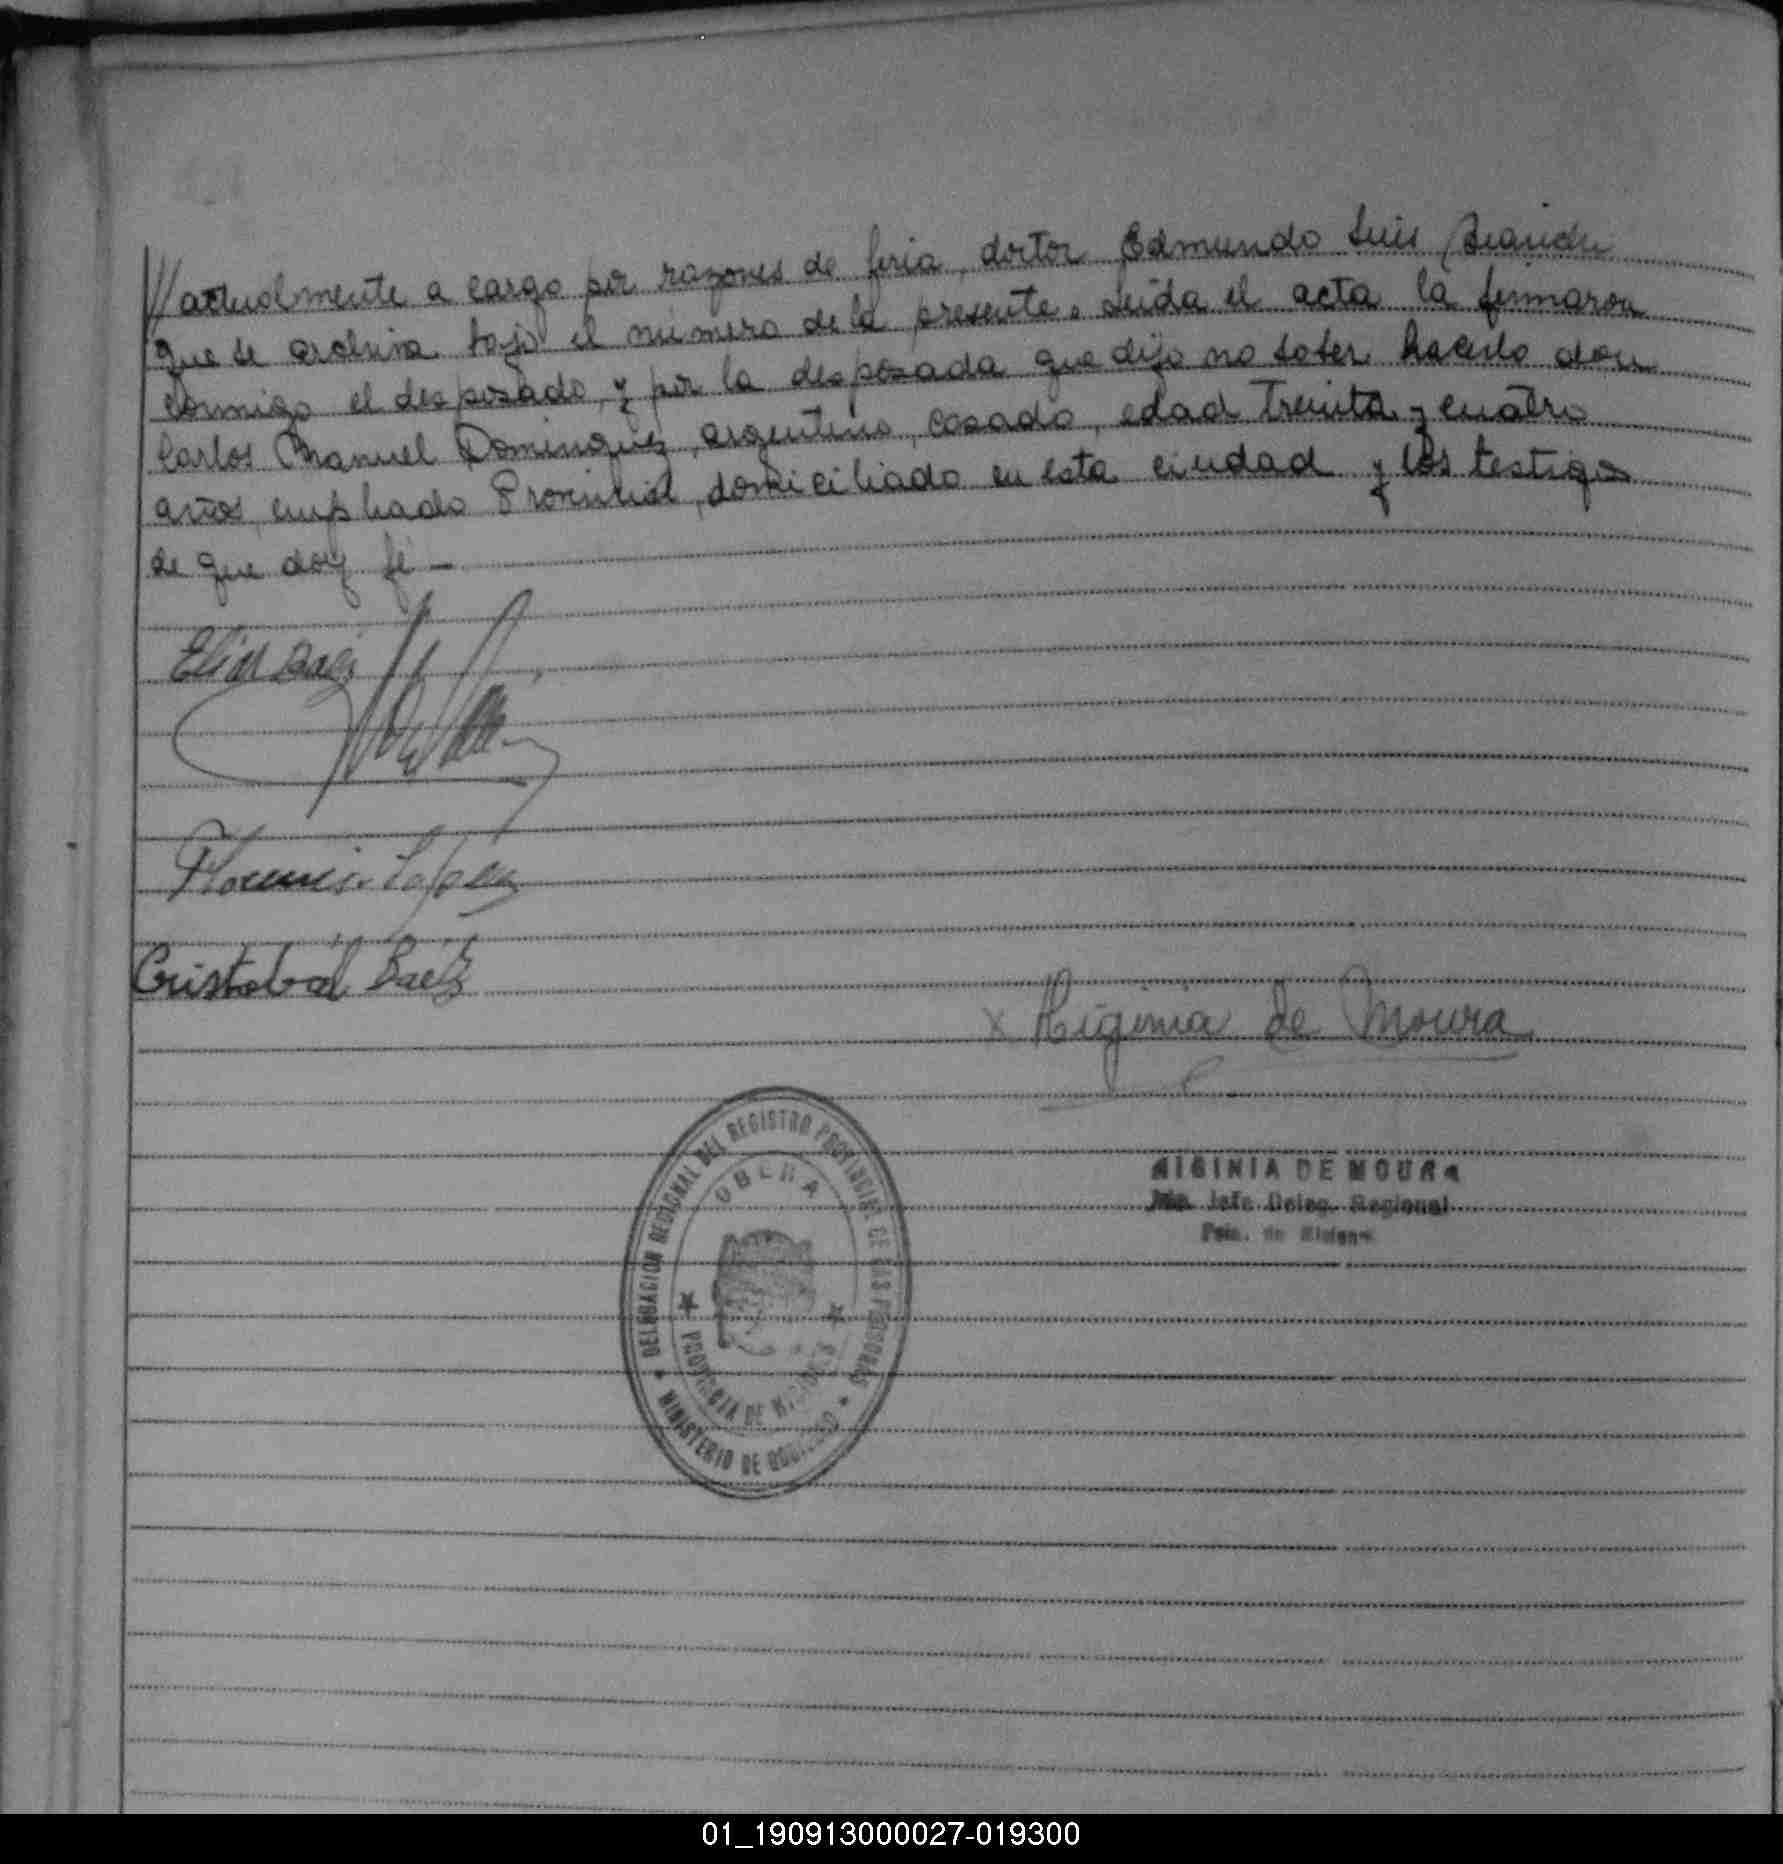 //actualmente a cargo por razones de feria, doctor Edmundo Luis
que se archiva bajo el número de la presente. Leida el acta la firmaron
conmigo el desposado, y por la desposada que dijo no saber hacerlo don
Carlos Manuel Dominguez, argentino, casado, edad treinta y cuatro
años, empleado Provincial, domiciliado en esta ciudad y los testigos
de que doy fé —
Elias Baez
Florencio Lopez
Cristobál Baez
x Higinia de Moura
DELEGACION REGIONAL DEL REGISTRO PROVINCIAL DE LAS PERSONAS
OBERA
PROVINCIA DE MISIONES
MINISTERIO DE GOBIERNO
HIGINIA DE MOURA
Jefe Deleg. Regional
Pcia. de Misiones
01_190913000027-019300